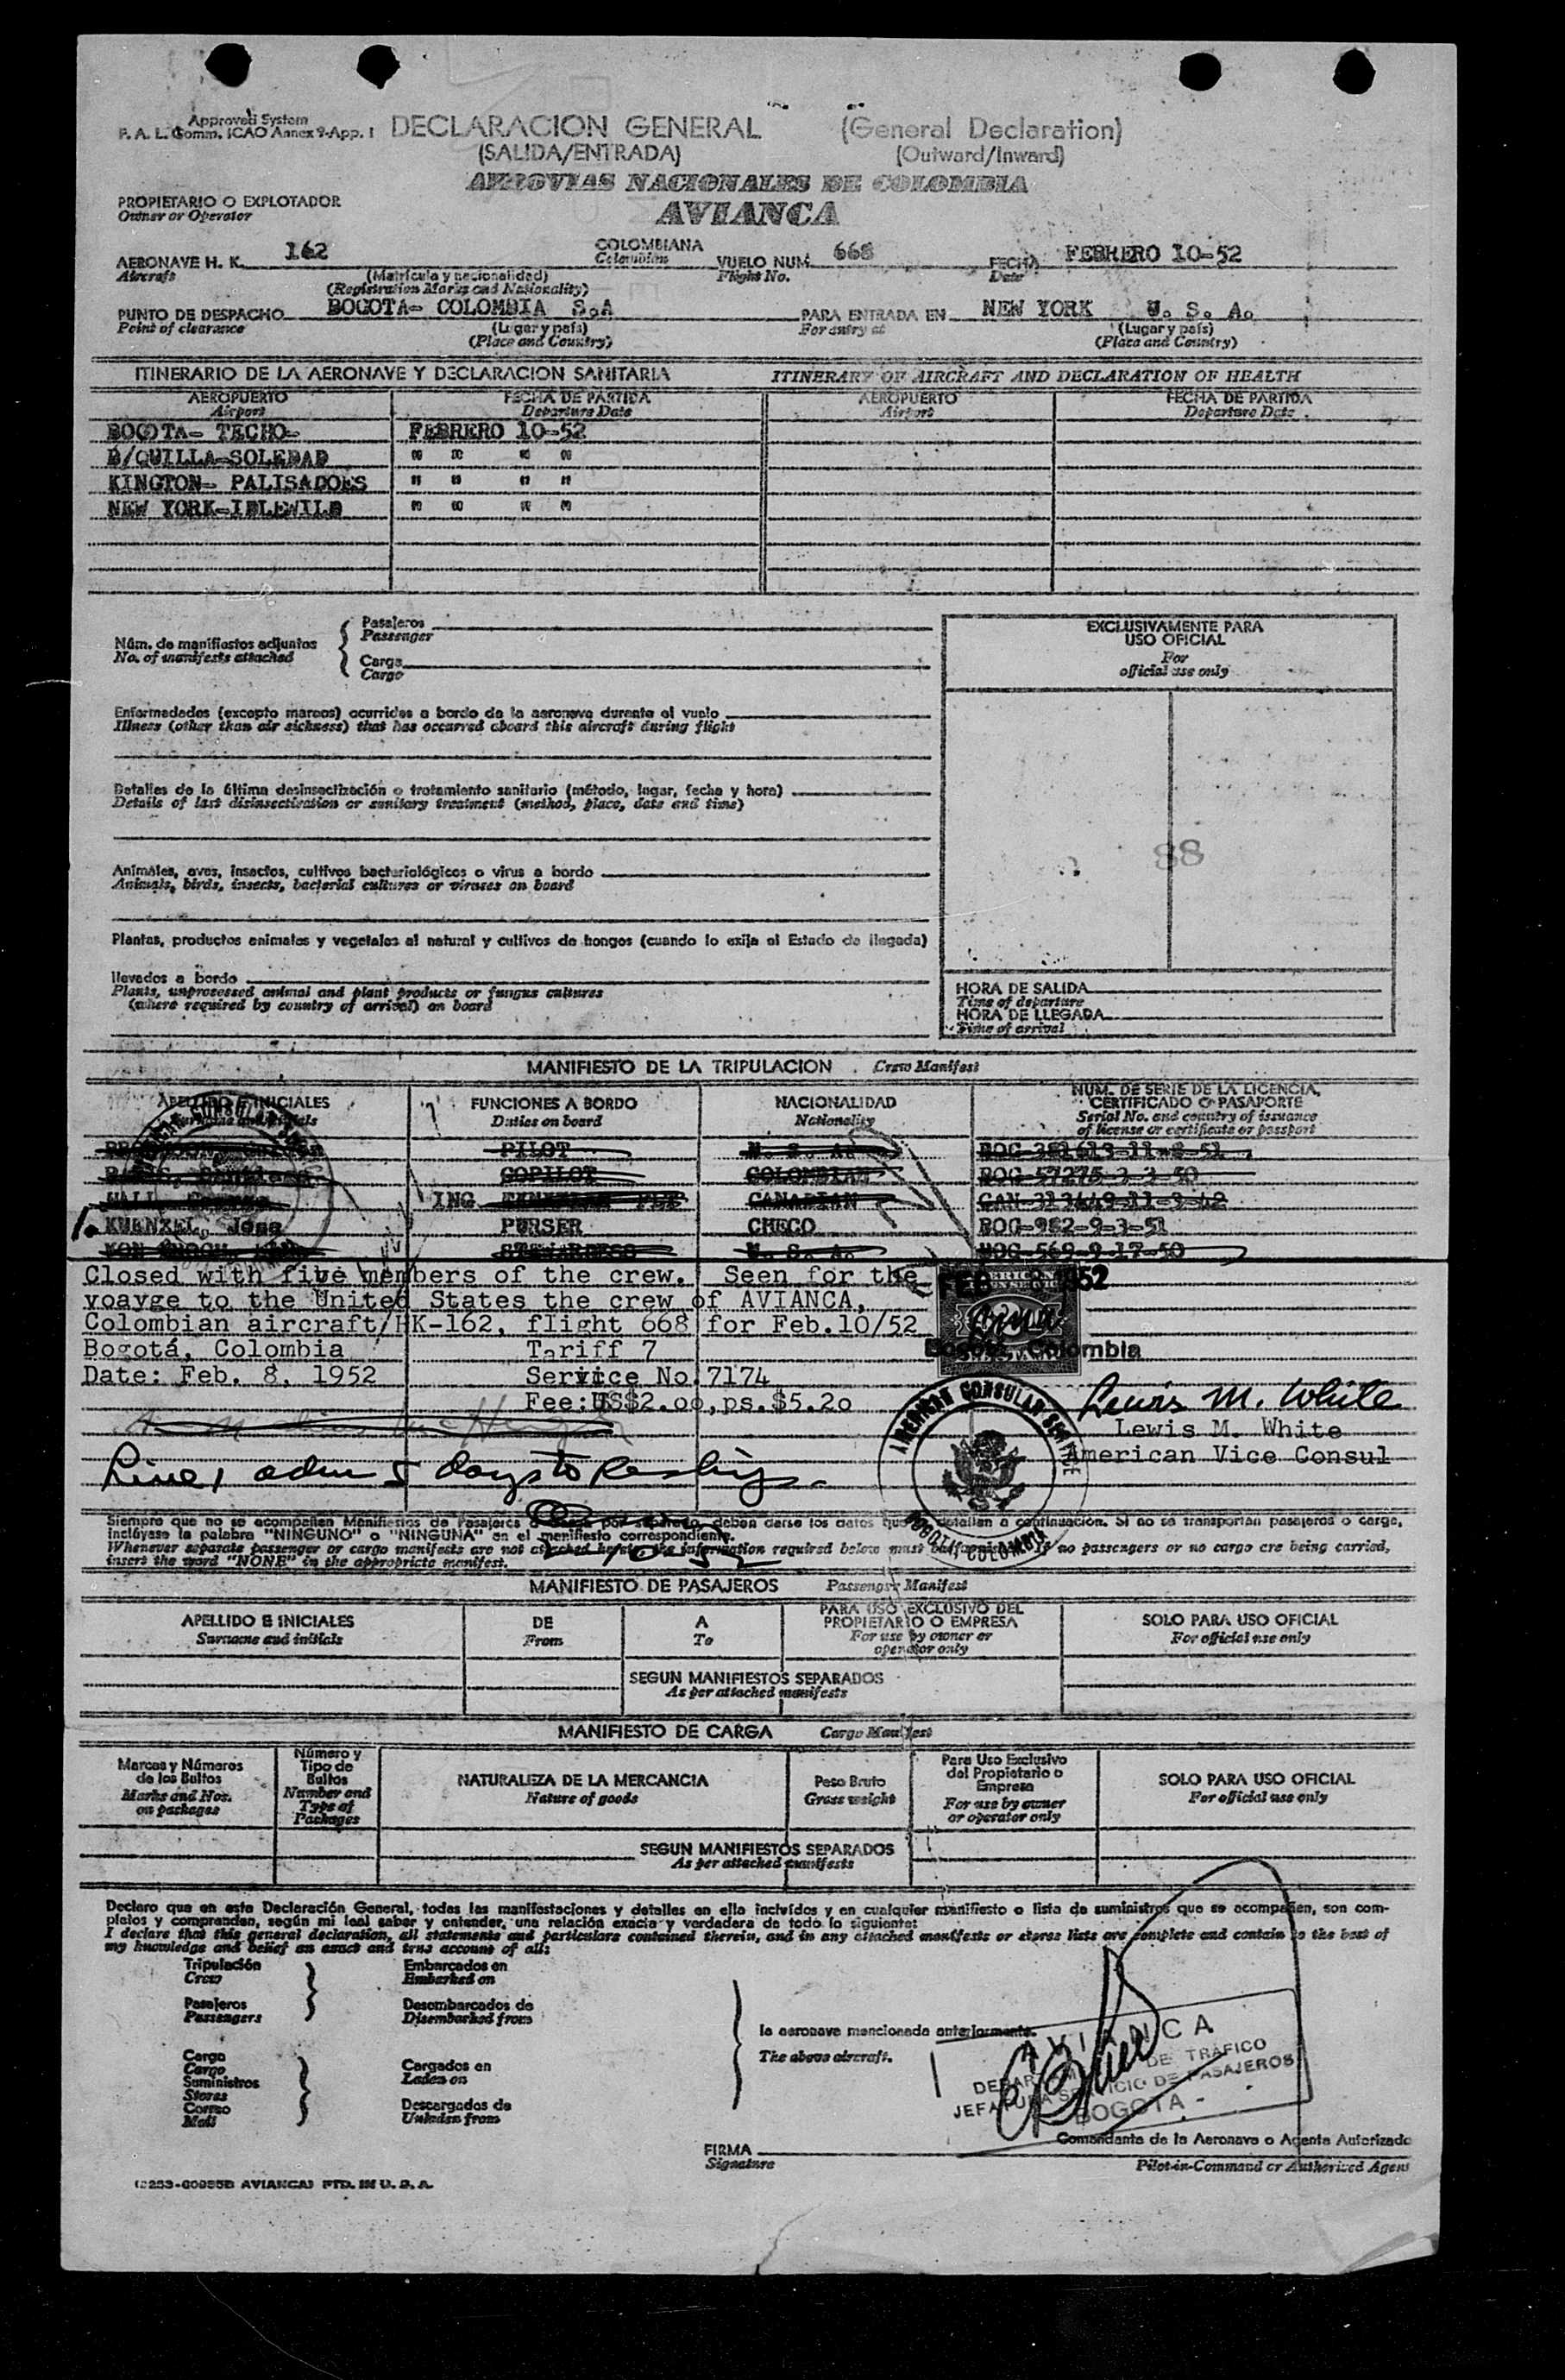 Approved System
F. A. L. Comm. ICAO Annex 9-App. 1
DECLARACION GENERAL (General Declaration)
(SALIDA/ENTRADA) (Outward/Inward)
AEROVIAS NACIONALES DE COLOMBIA
AVIANCA
PROPIETARIO O EXPLOTADOR
Owner or Operator
AERONAVE H. K. 162 COLOMBIANA VUELO NUM. 668 FECHA FEBRERO 10-52
Aircraft (Matrícula y nacionalidad) Colombian Flight No. Date
(Registration Marks and Nationality)
PUNTO DE DESPACHO BOGOTA- COLOMBIA S.A PARA ENTRADA EN NEW YORK U. S. A.
Point of clearance (Lugar y país) For entry at (Lugar y país)
(Place and Country) (Place and Country)
ITINERARIO DE LA AERONAVE Y DECLARACION SANITARIA ITINERARY OF AIRCRAFT AND DECLARATION OF HEALTH
AEROPUERTO FECHA DE PARTIDA AEROPUERTO FECHA DE PARTIDA
Airport Departure Date Airport Departure Date
BOGOTA- TECHO- FEBRERO 10-52
B/QUILLA-SOLEDAD " " " "
KINGTON- PALISADOES " " " "
NEW YORK-IDLEWILD " " " "
Núm. de manifiestos adjuntos
No. of manifests attached
Pasajeros
Passenger
Carga
Cargo
EXCLUSIVAMENTE PARA
USO OFICIAL
For
official use only
Enfermedades (excepto mareos) ocurridas a bordo de la aeronave durante el vuelo
Illness (other than air sickness) that has occurred aboard this aircraft during flight
Detalles de la última desinsectización o tratamiento sanitario (método, lugar, fecha y hora)
Details of last disinsectization or sanitary treatment (method, place, date and time)
88
Animales, aves, insectos, cultivos bacteriológicos o virus a bordo
Animals, birds, insects, bacterial cultures or viruses on board
Plantas, productos animales y vegetales al natural y cultivos de hongos (cuando lo exija el Estado de llegada)
llevados a bordo
Plants, unprocessed animal and plant products or fungus cultures
(where required by country of arrival) on board
HORA DE SALIDA
Time of departure
HORA DE LLEGADA
Time of arrival
MANIFIESTO DE LA TRIPULACION Crew Manifest
APELLIDO E INICIALES FUNCIONES A BORDO NACIONALIDAD NUM. DE SERIE DE LA LICENCIA,
Surname and initials Duties on board Nationality CERTIFICADO O PASAPORTE
Serial No. and country of issuance
of license or certificate or passport
PILOT U. S. A. BOG-381613-11-8-51
COPILOT COLOMBIAN BOG-57275-3-3-50
ING FLT CANADIAN CAN-313449-11-3-42
1. KUENZEL, Jose PURSER CHECO BOG-982-9-3-51
STEWARDESS U. S. A. BOG-569-9-17-50
Closed with five members of the crew. Seen for the
voayge to the United States the crew of AVIANCA,
Colombian aircraft/HK-162, flight 668 for Feb.10/52
Bogotá, Colombia Tariff 7
Date: Feb. 8, 1952 Service No.7174
Fee:US$2.oo,ps.$5.2o
FEB 8 1952
Bogotá, Colombia
Lewis M. White
Lewis M. White
American Vice Consul
AMERICAN CONSULAR SERVICE
BOGOTA, COLOMBIA
Line 1 adm 5 days to Reship.
Siempre que no se acompañen Manifiestos de Pasajeros o Carga por separado, deben darse los datos que se detallan a continuación. Si no se transportan pasajeros o carga,
inclúyase la palabra "NINGUNO" o "NINGUNA" en el manifiesto correspondiente.
Whenever separate passenger or cargo manifests are not attached hereto, the information required below must be furnished. If no passengers or no cargo are being carried,
insert the word "NONE" in the appropriate manifest.
MANIFIESTO DE PASAJEROS Passenger Manifest
APELLIDO E INICIALES DE A PARA USO EXCLUSIVO DEL SOLO PARA USO OFICIAL
Surname and initials From To PROPIETARIO O EMPRESA For official use only
For use by owner or
operator only
SEGUN MANIFIESTOS SEPARADOS
As per attached manifests
MANIFIESTO DE CARGA Cargo Manifest
Marcas y Números
de los Bultos
Marks and Nos.
on packages
Número y
Tipo de
Bultos
Number and
Type of
Packages
NATURALEZA DE LA MERCANCIA
Nature of goods
Peso Bruto
Gross weight
Para Uso Exclusivo
del Propietario o
Empresa
For use by owner
or operator only
SOLO PARA USO OFICIAL
For official use only
SEGUN MANIFIESTOS SEPARADOS
As per attached manifests
Declaro que en esta Declaración General, todas las manifestaciones y detalles en ella incluídos y en cualquier manifiesto o lista de suministros que se acompañen, son com-
pletos y comprenden, según mi leal saber y entender, una relación exacta y verdadera de todo lo siguiente:
I declare that this general declaration, all statements and particulars contained therein, and in any attached manifests or stores lists are complete and contain to the best of
my knowledge and belief an exact and true account of all:
Tripulación Embarcados en
Crew Embarked on
Pasajeros Desembarcados de
Passengers Disembarked from
la aeronave mencionada anteriormente.
The above aircraft.
Carga
Cargo
Suministros
Stores
Correo
Mail
Cargados en
Laden on
Descargados de
Unladen from
AVIANCA
DEPARTAMENTO DE TRAFICO
JEFATURA SERVICIO DE PASAJEROS
BOGOTA
FIRMA Comandante de la Aeronave o Agente Autorizado
Signature Pilot-in-Command or Authorized Agent
AVIANCA) PTD. IN U. S. A.